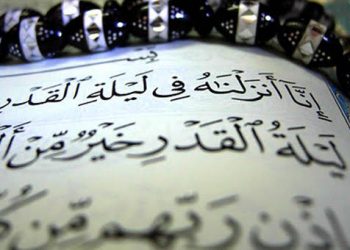 بِسْمِ
إِنَّا أَنزَلْنَٰهُ فِى لَيْلَةِ ٱلْقَدْرِ
لَيْلَةُ ٱلْقَدْرِ خَيْرٌ مِّنْ
إِذْنِ رَبِّهِم مِّن